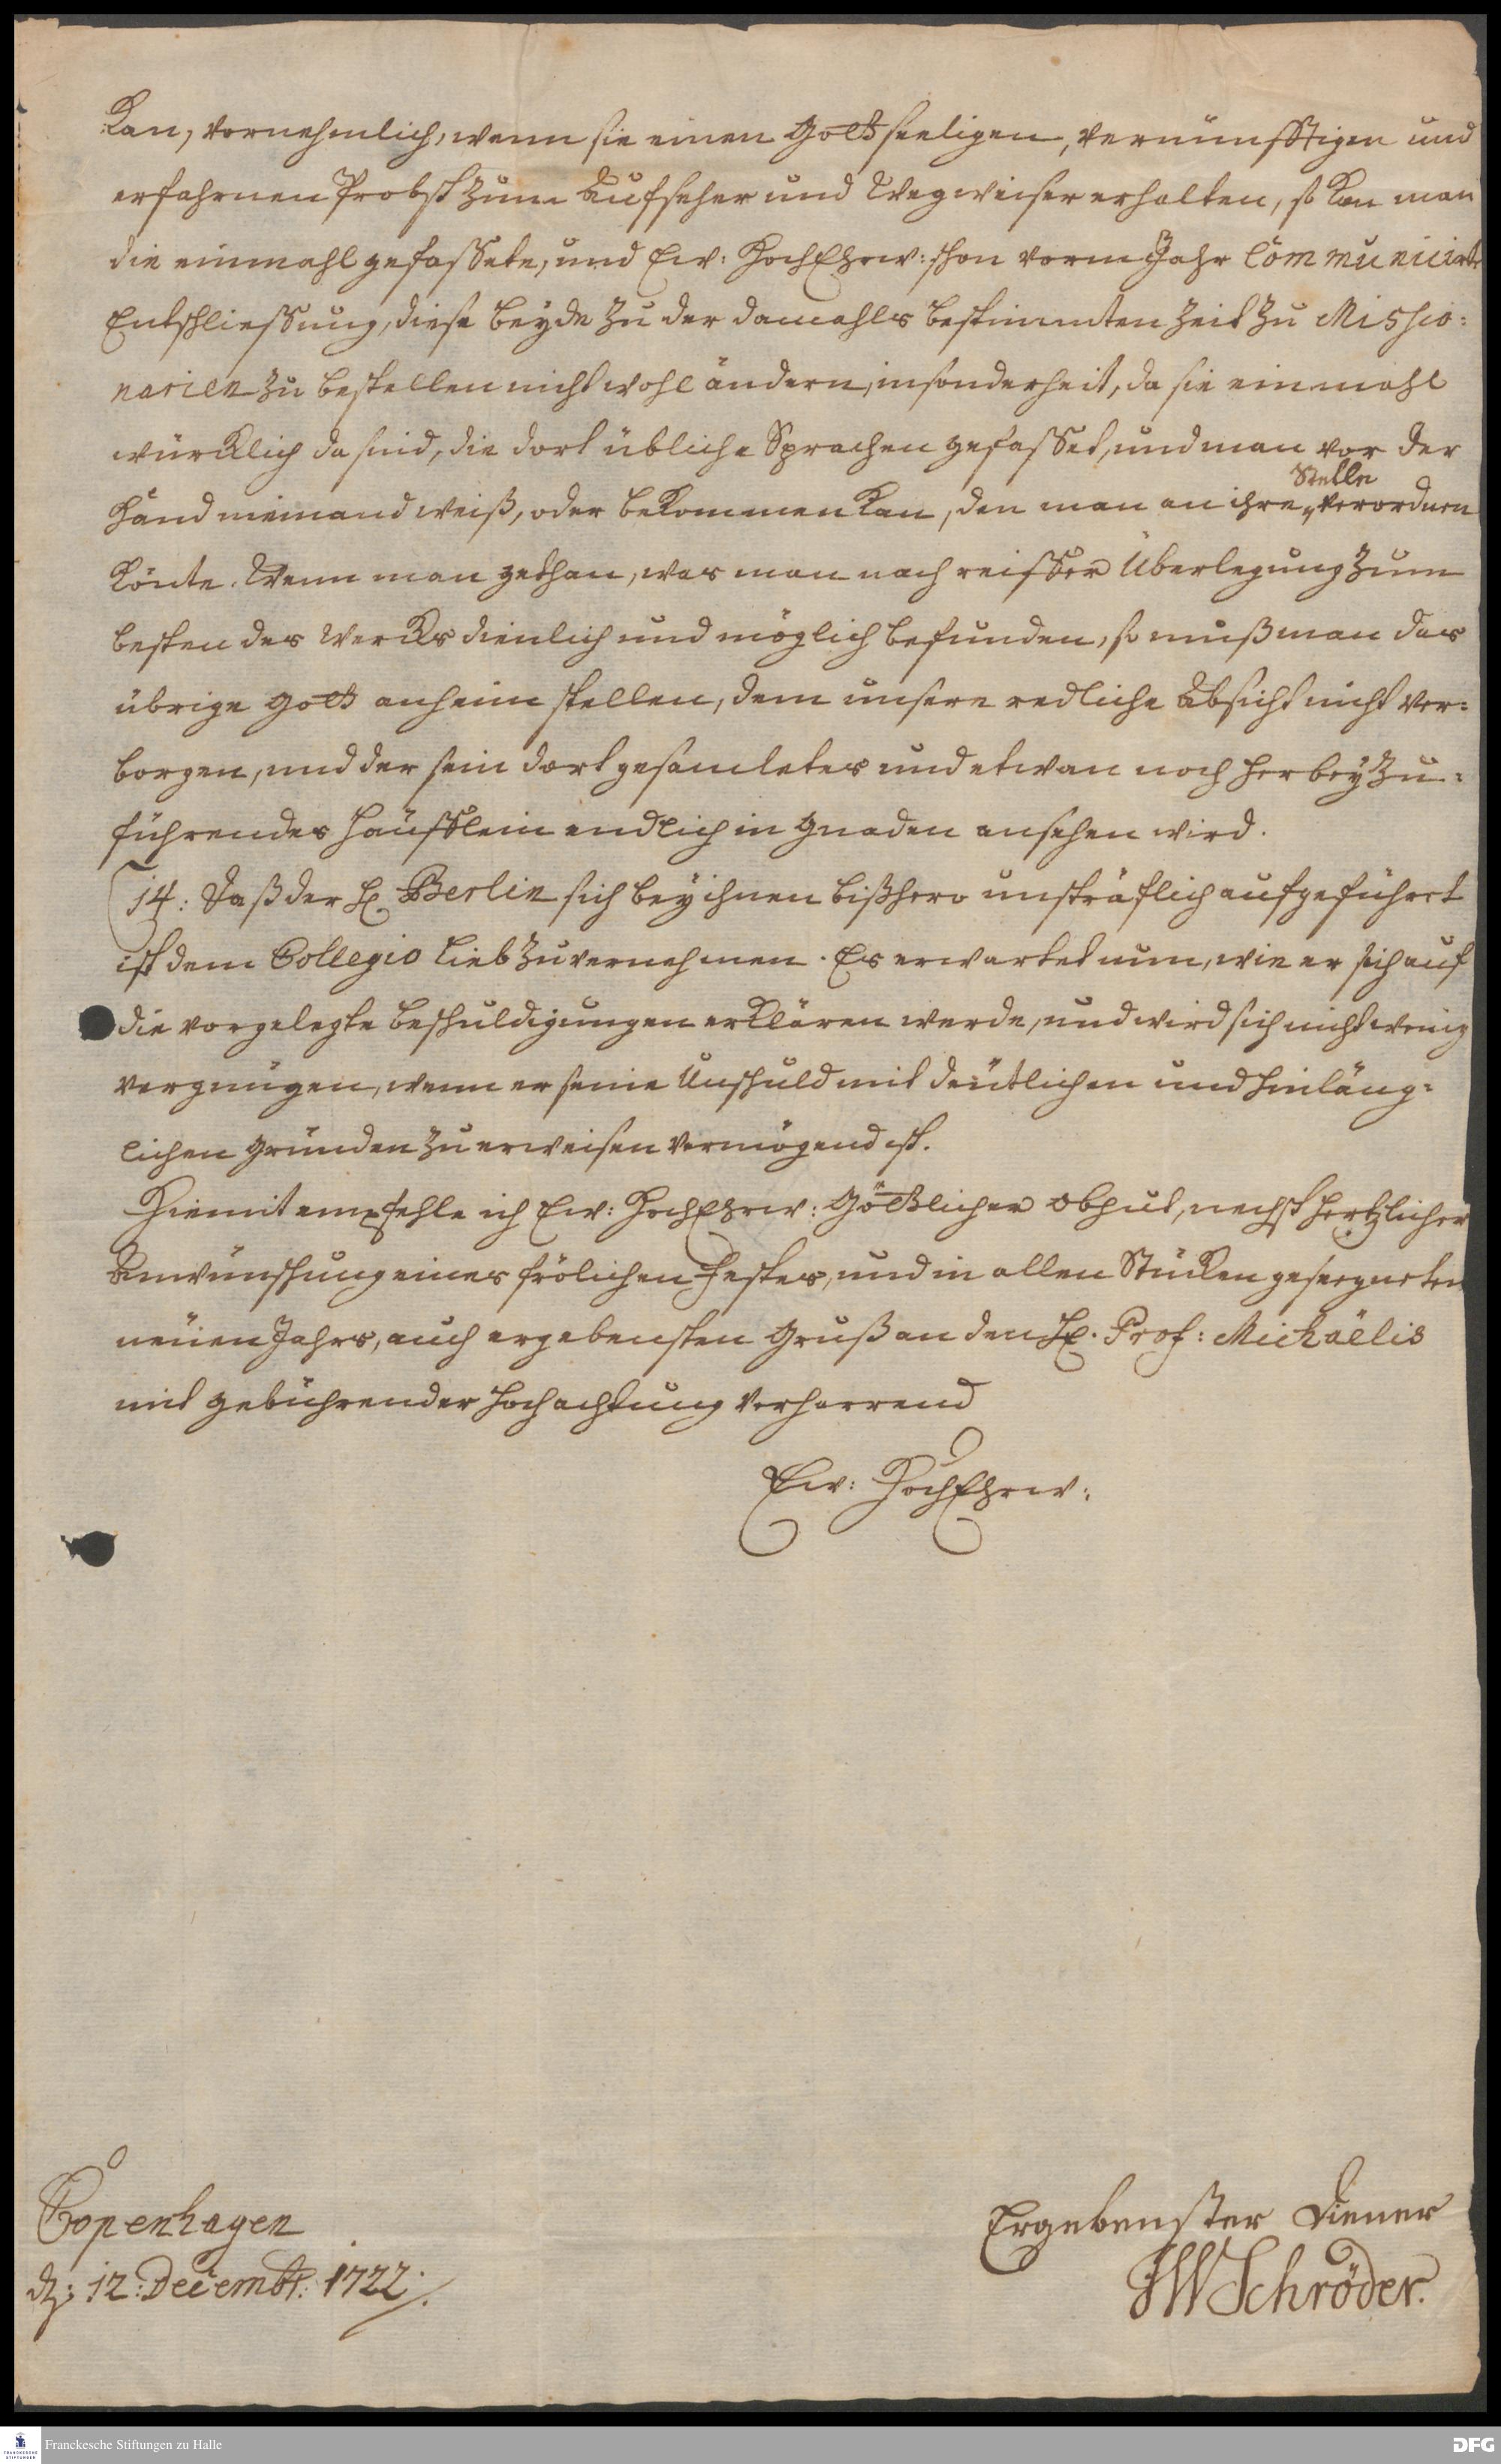 Kan, vornehmlich, wenn sie einen Gottseeligen, vernünfftigen und
erfahrnen Probst zum Aufseher und Wegweiser erhalten, so kan man
die einmahl gefassete, und Ew: HochEhrw: schon vorm Jahr communicirte
Entschliessung, diese beyde zu der damahls bestimmten Zeit zu Missio-
narien zu bestellen nicht wohl ändern, insonderheit, da sie einmahl
würcklich da sind, die dort übliche Sprachen gefasset, und man vor der
Hand niemand weiß, oder bekommen kan, den man an ihre Stelle verordnen
könte. Wenn man gethan, was man nach reiffer Überlegung zum
besten des Wercks dienlich und möglich befunden, so muß man das
übrige Gott anheim stellen, dem unsere redliche Absicht nicht ver-
borgen, und der sein dort gesamletes und etwan noch herbey zu-
führendes Häufflein endlich in Gnaden ansehen wird.
14: Daß der H. Berlin sich bey ihnen bißhero unsträflich aufgeführt
ist dem Collegio lieb zu vernehmen. Es erwartet nun, wie er sich auf
die vorgelegte Beschuldigungen erklären werde, und wird sich nicht wenig
vergnügen, wenn er seine Unschuld mit deütlichen und hinläng-
lichen Gründen zu erweisen vermögend ist.
Hiemit empfehle ich Ew: HochEhrw: Göttlicher Obhut, nechst hertzlicher
Anwünschung eines frölichen Festes, und in allen Stücken geseegneten
neüen Jahrs, auch ergebensten Gruß an den H. Prof: Michaëlis
mit gebührender Hochachtung verharrend
Ew: HochEhrw:
Copenhagen
d. 12: Decembr: 1722.
Ergebenster Diener
JWSchröder.
Franckesche Stiftungen zu Halle
DFG